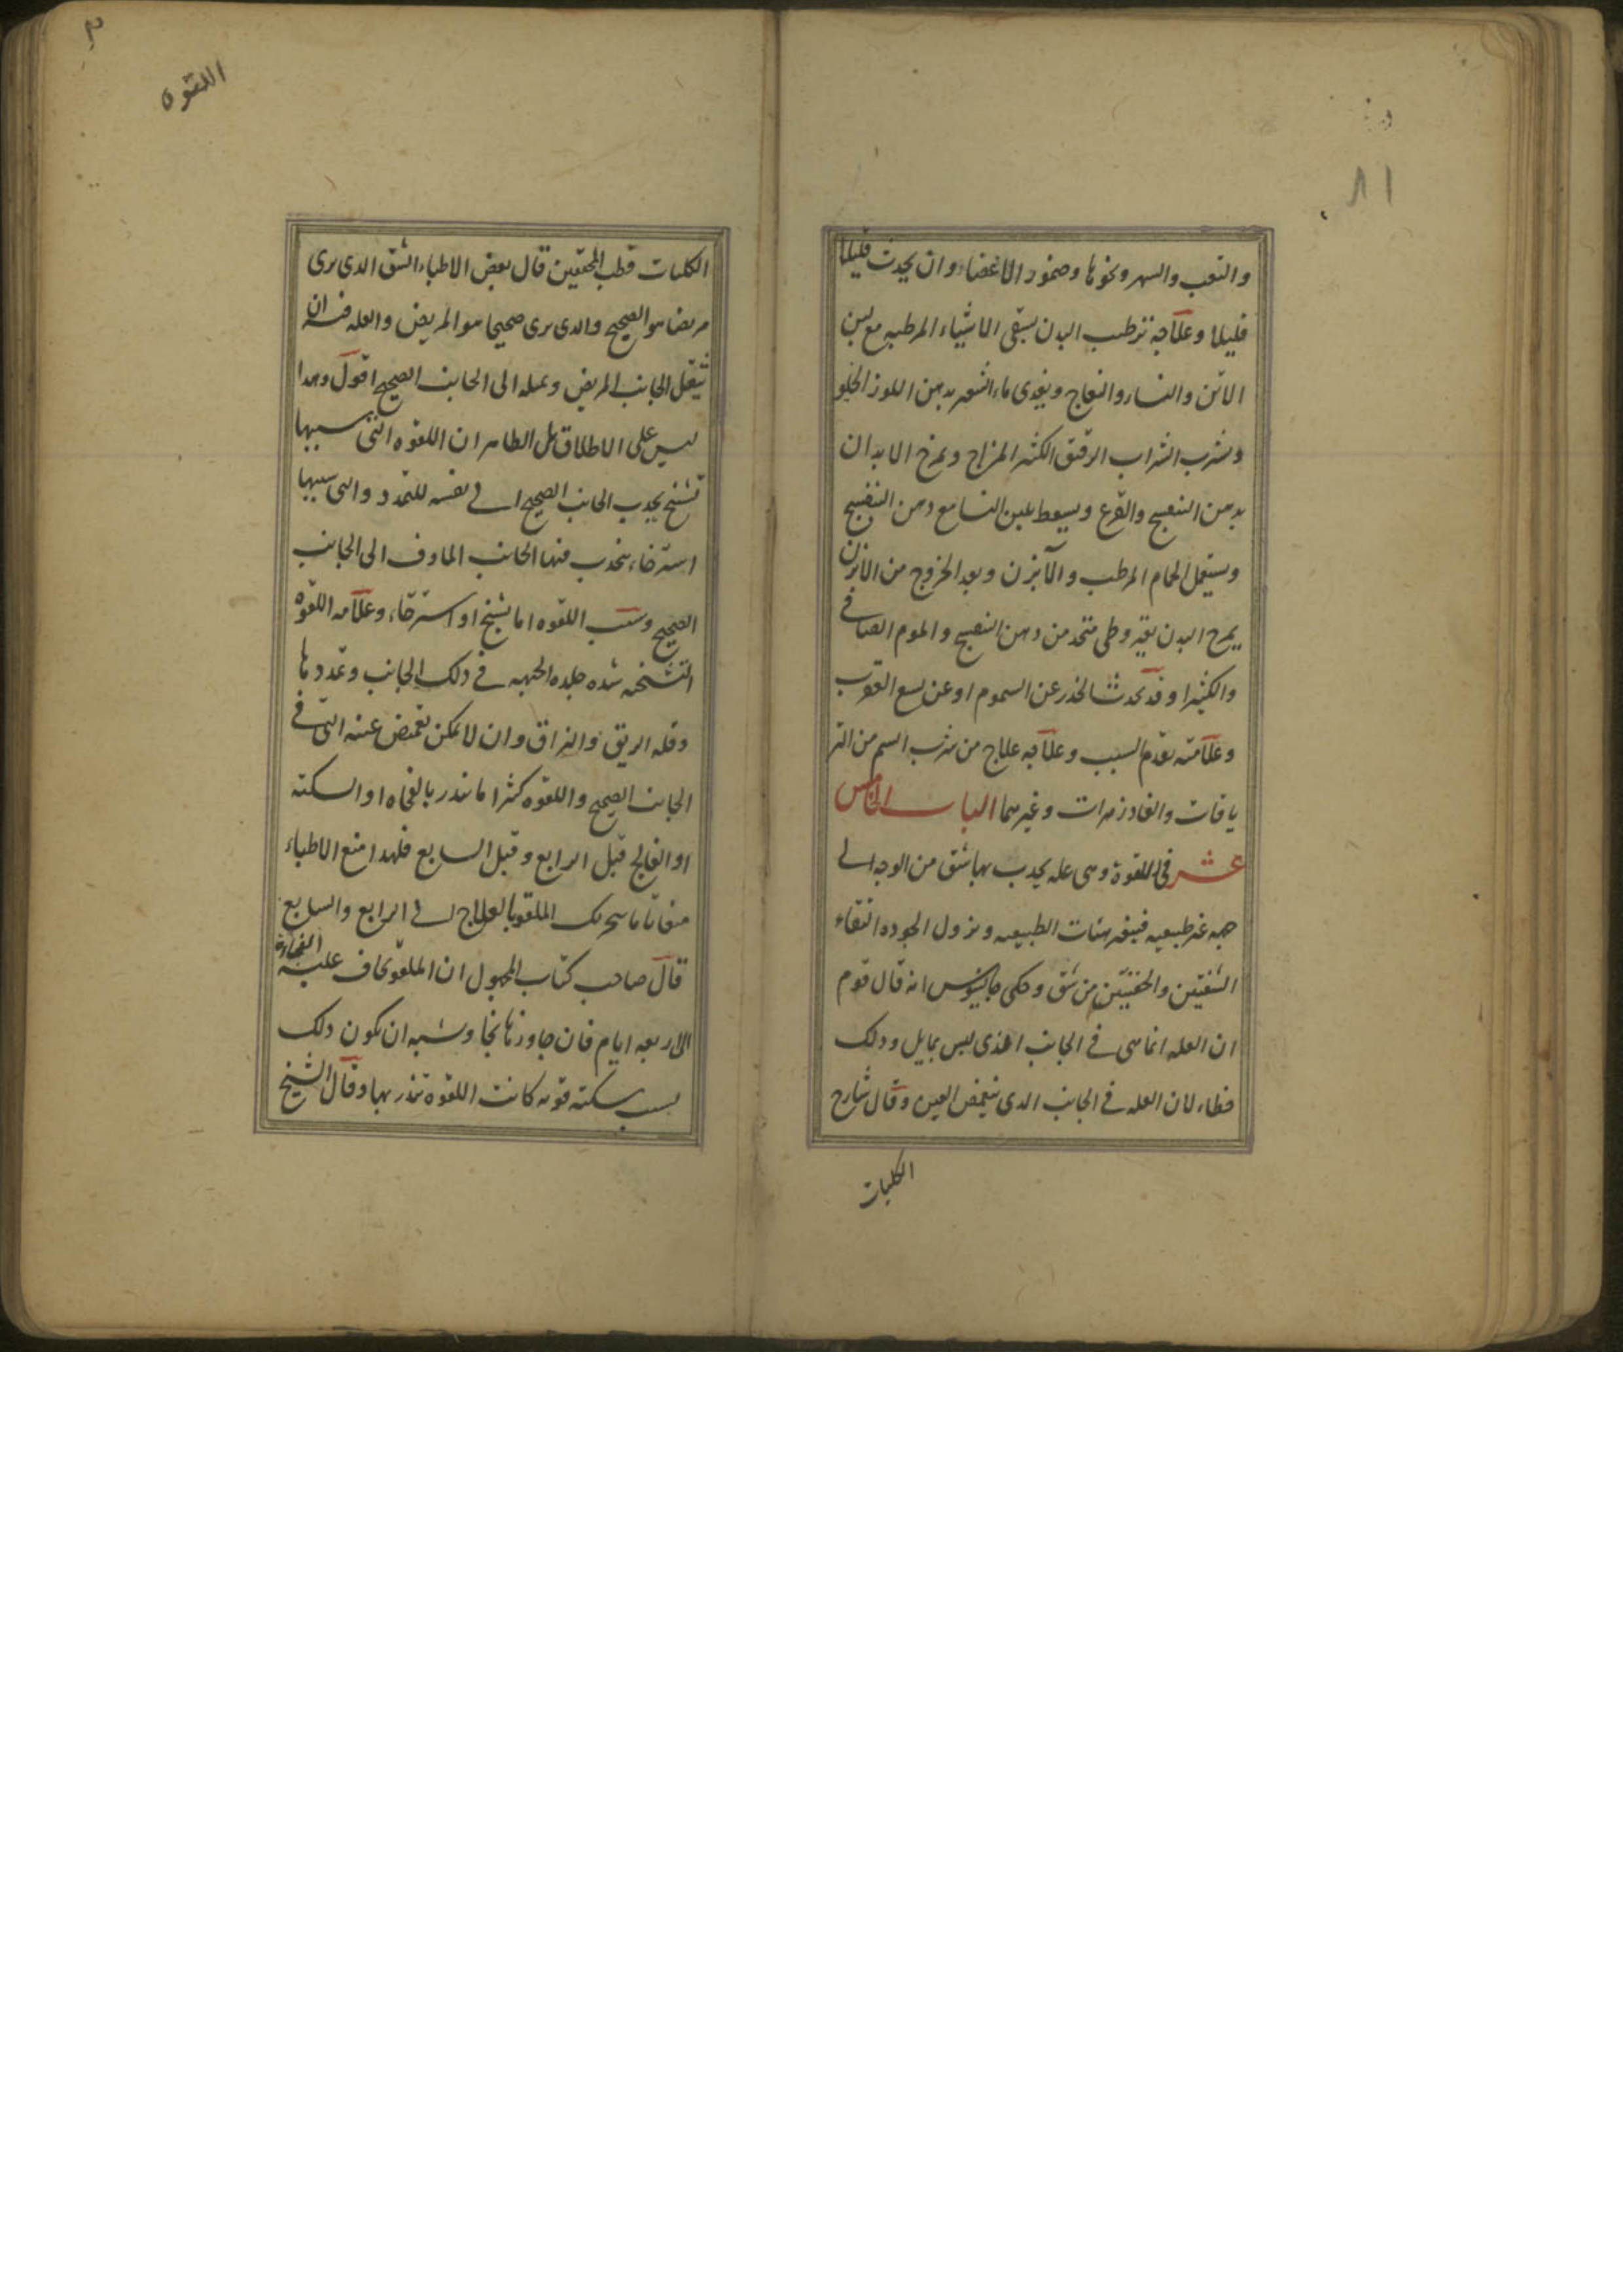 ٨١
والتعب والسهر ونحوها وضمور الاعضاء وان يحدث قليلا
قليلا وعلاجه ترطيب البدن بسقى الاشياء المرطبه مع لبن
الاتن والنساء والنعاج ويغدى ماء الشعير بدهن اللوز الحلو
وشرب الشراب الرقيق الكثير المزاج وتمرخ الابدان
بدهن البنفسج والقرع ويسعط بلبن النسا مع دهن البنفسج
ويستعمل الحمام المرطب والآبزن وبعد الخروج من الابزن
يمرخ البدن بقيروطى متخد من دهن البنفسج والموم الصافى
والكثيرا وقد يحدث الخدر عن السموم او عن لسع العقرب
وعلامته تقدم السبب وعلاجه علاج من شرب السم من التر
ياقات والفادزهرات وغيرهما الباب الخامس
عشر فى اللقوة وهى عله يجدب بها شق من الوجه الى
جهه غير طبيعيه فيتغير هيئات الطبيعيه ويزول الجوده التقاء
الشفتين والجفنين من شق وحكى جالينوس انه قال قوم
ان العله انما هى فى الجانب الذى ليس بمايل ودلك
خطاء لان العله فى الجانب الدى ينغمض العين وقال شارح
الكليات
اللقوه
الكليات قطب المحققين قال بعض الاطباء الشق الدى يرى
مريضا هو الصحيح والدى يرى صحيحا هو المريض والعله فيه ان
يثقل الجانب المريض ويميله الى الجانب الصحيح اقول وهدا
ليس على الاطلاق بل الظاهر ان اللقوه التى سببها
تشنج يجدب الجانب الصحيح الى نفسه للتمدد والتى سببها
استرخاء ينجدب فيها الجانب الماوف الى الجانب
الصحيح وسبب اللقوه اما تشنج او استرخاء وعلامه اللقوه
التشنجيه شده جلده الجبهه فى دلك الجانب وتمددها
وقله الريق والبزاق وان لا يمكن تغميض عينه التى فى
الجانب الصحيح واللقوه كثيرا ما تندر بالفجاه او السكته
او الفالج قبل الرابع وقبل السابع فلهدا منع الاطباء
الملقو بالعلاج الى الرابع والسابع
قال صاحب كتاب المجهول ان الملقو يخاف عليه الفجاءة
الى اربعه ايام فان جاوزها نجا وشبه ان يكون دلك
بسبب سكته قويه كانت اللقوه تندر بها وقال الشيخ